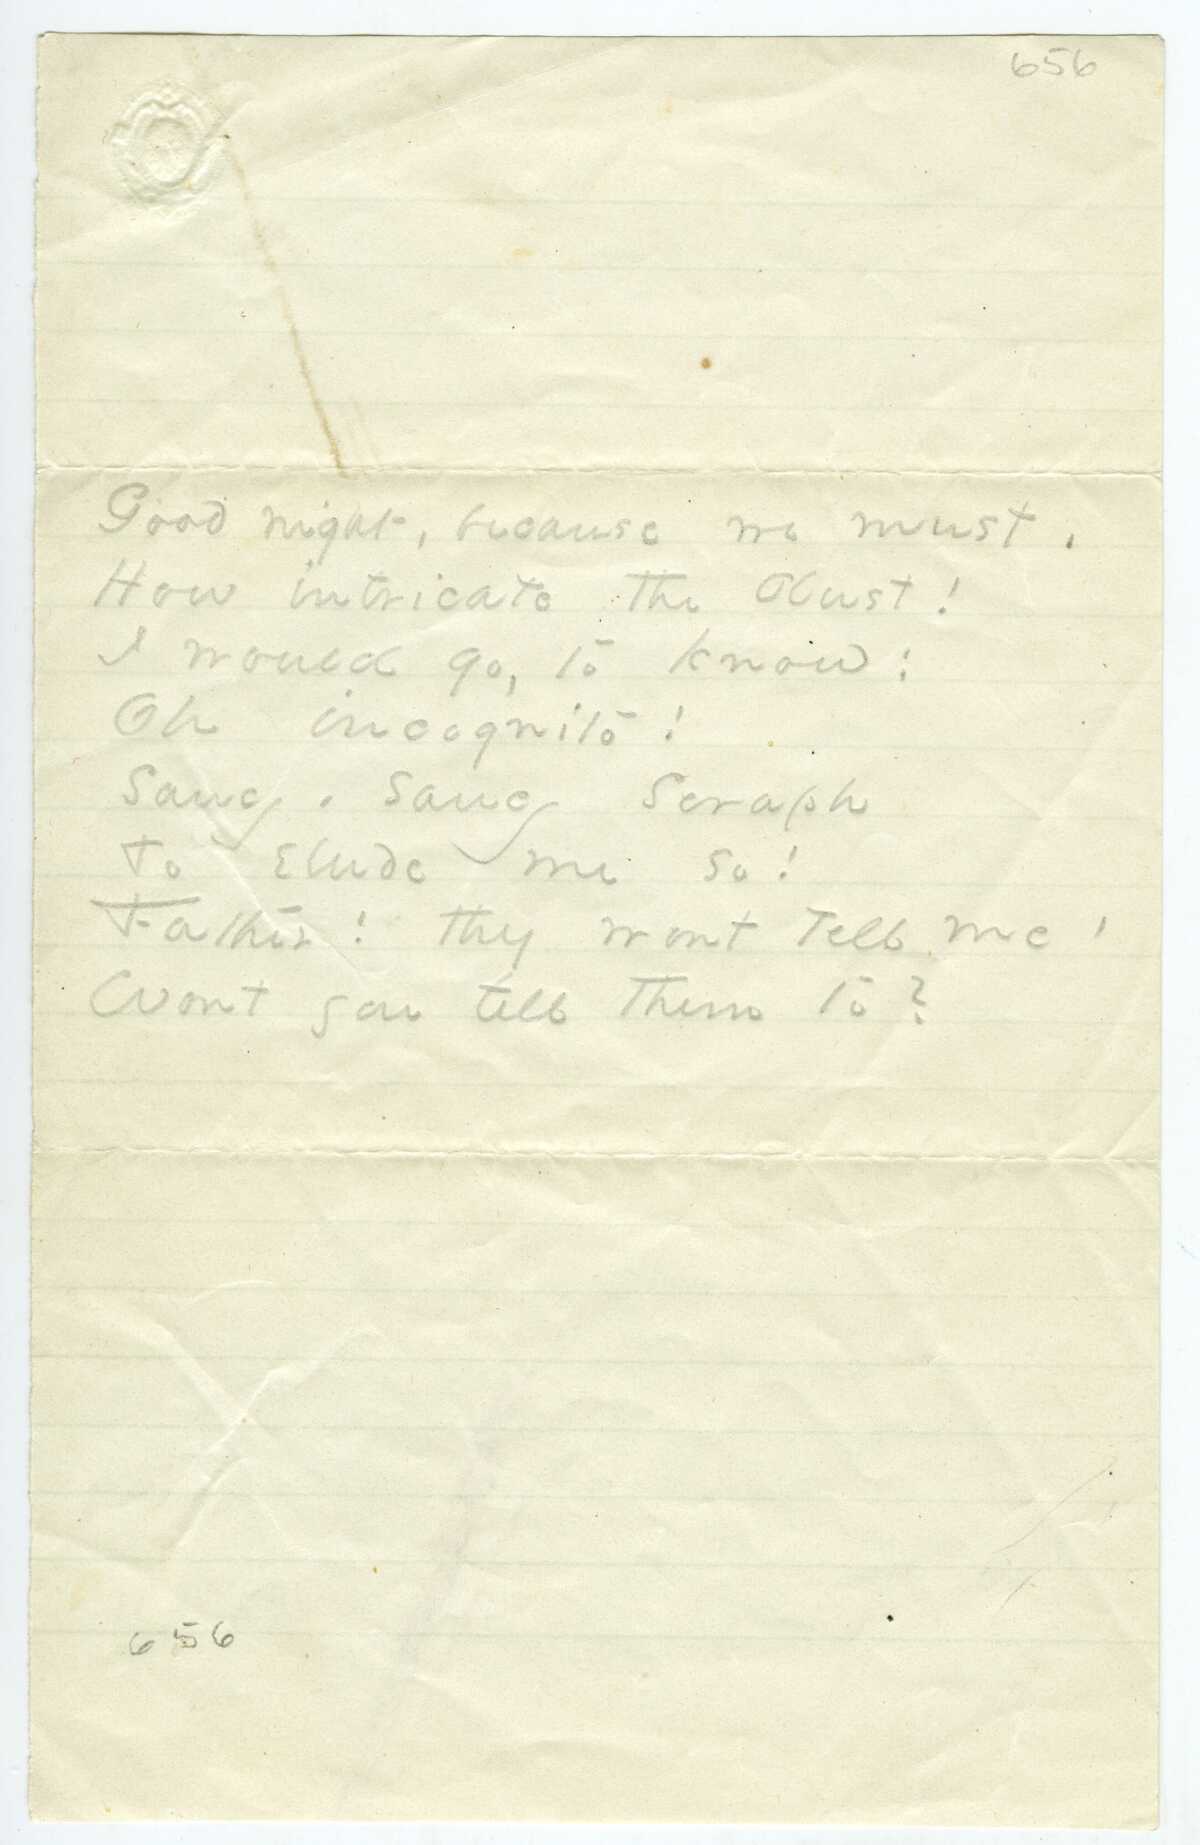 656
Good night, because we must.
How intricate the Dust!
I would go, to know:
Oh incognito!
Saucy. Saucy Seraph
To Elude me so!
Father! they wont tell me!
Wont you tell them to?
656